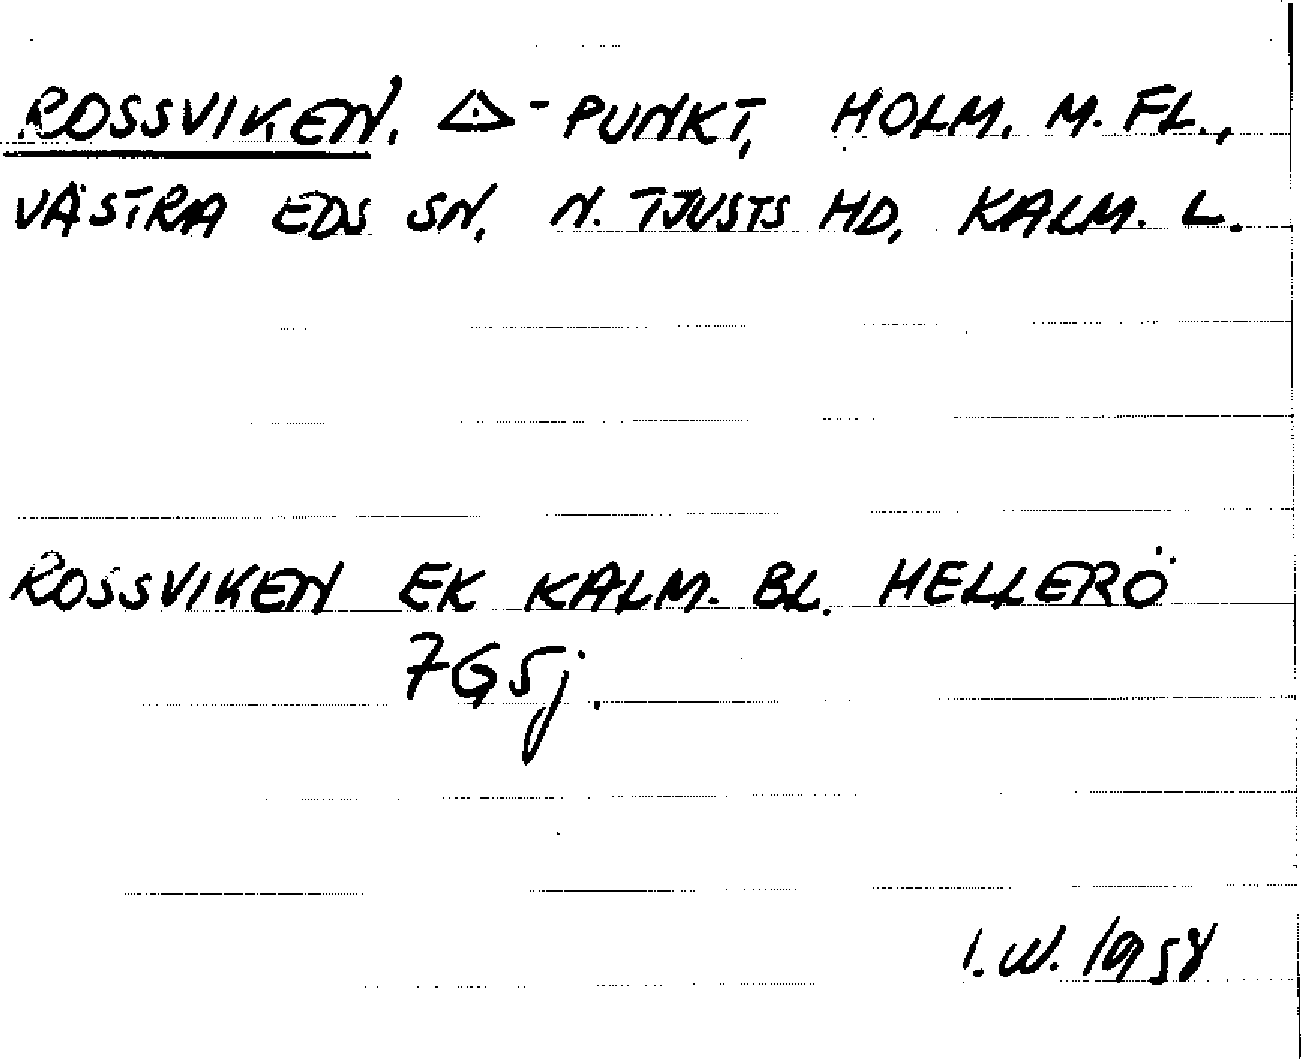 ROSSVIKEN. ⟁-PUNKT, HOLM. M. FL.,
VÄSTRA EDS SN, N. TJUSTS HD, KALM. L.
ROSSVIKEN EK KALM. BL. HELLERÖ
7G5j.
I.W. 1958